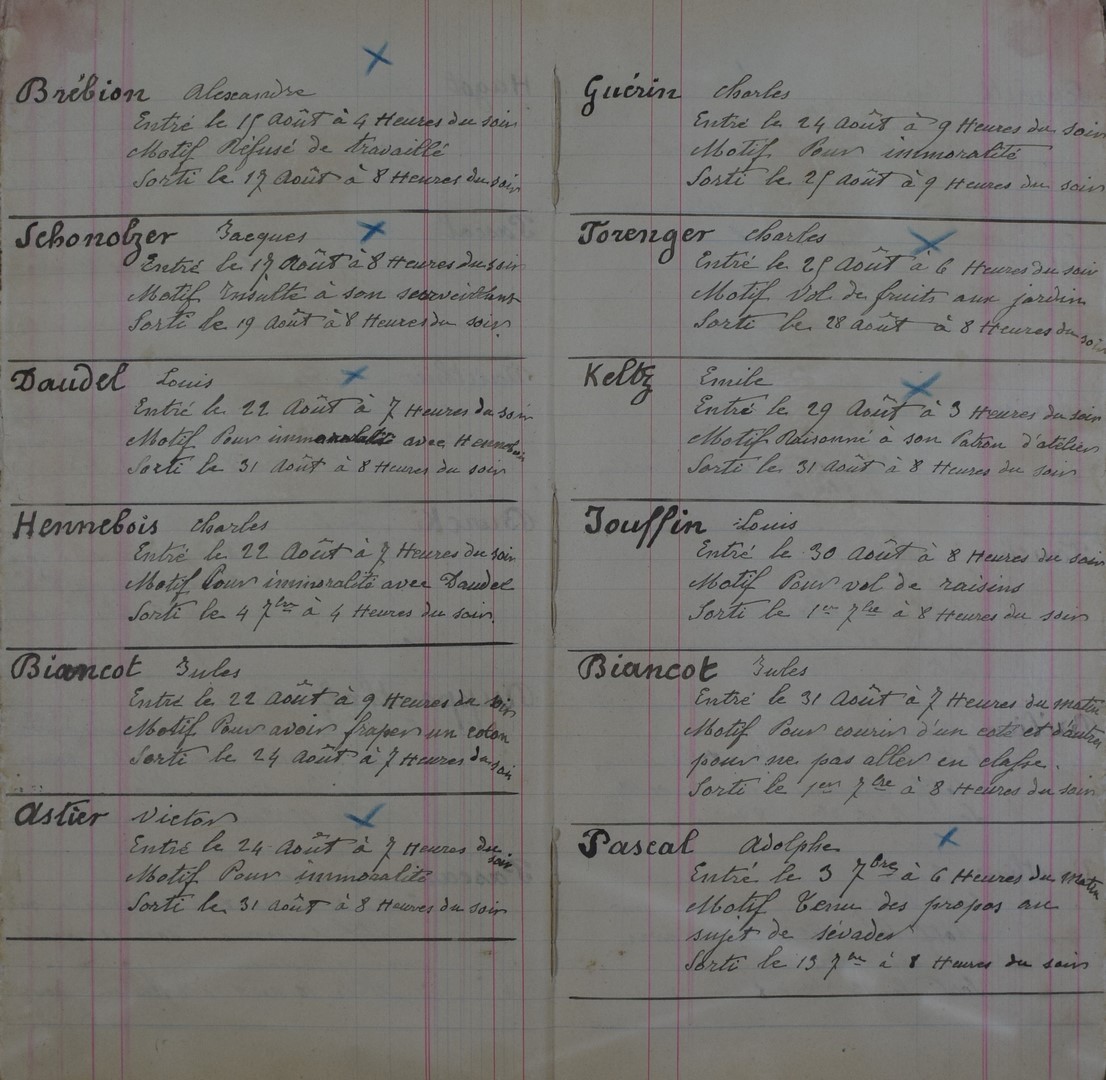 Brébion Alexandre
Entré le 15 Août à 4 Heures du soir
Motif Réfusé de travaillé
Sorti le 17 Août à 8 Heures du soir
Schonolzer Jacques
Entré le 17 Août à 8 Heures du soir
Motif Insulte à son surveillant
Sorti le 19 Août à 8 Heures du soir
Daudel Louis
Entré le 22 Août à 7 Heures du soir
Motif Pour immoralité avec Hennebois
Sorti le 31 Août à 8 Heures du soir
Hennebois Charles
Entré le 22 Août à 7 Heures du soir
Motif Pour immoralité avec Daudel
Sorti le 4 7bre à 4 Heures du soir
Biancot Jules
Entré le 22 Août à 9 Heures du soir
Motif Pour avoir fraper un colon
Sorti le 24 Août à 7 Heures du soir
Astier Victor
Entré le 24 Août à 7 Heures du soir
Motif Pour immoralité
Sorti le 31 août à 8 Heures du soir
Guérin Charles
Entré le 24 Août à 9 Heures du soir
Motif Pour immoralité
Sorti le 25 Août à 9 Heures du soir
Torenger Charles
Entré le 25 Août à 6 Heures du soir
Motif Vol de fruits aux jardin
Sorti le 28 Août à 8 Heures du soir
Keltz Emile
Entré le 29 Août à 3 Heures du soir
Motif Raisonné à son Patron d'atelier
Sorti le 31 Août à 8 Heures du soir
Jouffin Louis
Entré le 30 Août à 8 Heures du soir
Motif Pour vol de raisins
Sorti le 1er 7bre à 8 Heures du soir
Biancot Jules
Entré le 31 Août à 7 Heures du matin
Motif Pour courir d'un coté et d'autre
pour ne pas aller en classe.
Sorti le 1er 7bre à 8 Heures du soir
Pascal Adolphe
Entré le 3 7bre à 6 Heures du matin
Motif Tenu des propos au
sujet de sévader
Sorti le 13 7bre à 8 Heures du soir